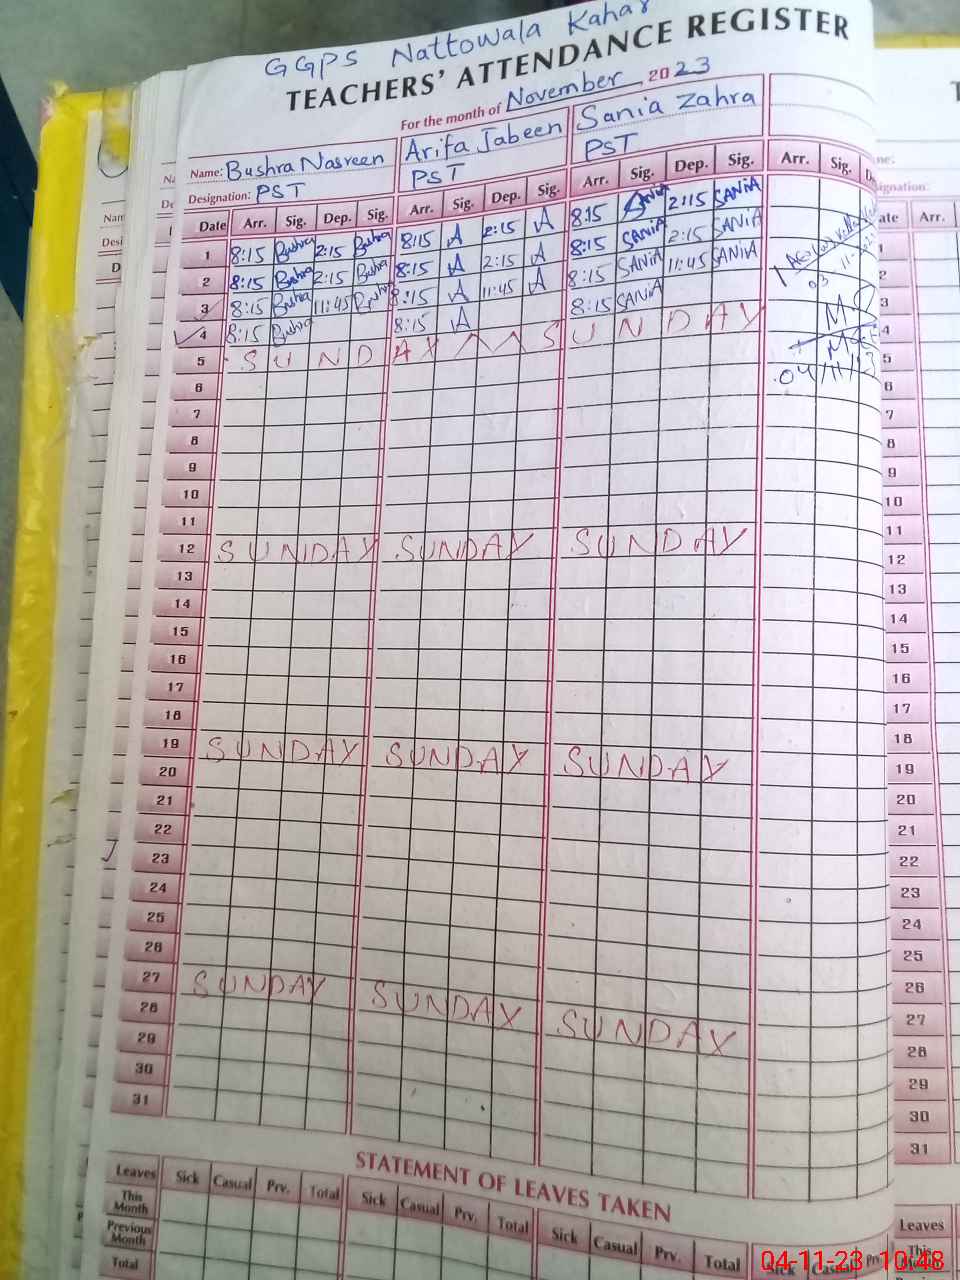 GGPS Nattowala Kahar
TEACHERS' ATTENDANCE REGISTER
For the month of November 2023
Name: Bushra Nasreen Arifa Jabeen Sania Zahra
Designation: PST PST PST
Date Arr. Sig. Dep. Sig. Arr. Sig. Dep. Sig. Arr. Sig. Dep. Sig. Arr. Sig.
1 8:15 Bushra 2:15 Bushra 8:15 A 2:15 A 8:15 SANiA 2:15 SANiA
2 8:15 Bushra 2:15 Bushra 8:15 A 2:15 A 8:15 SANiA 2:15 SANiA
3 8:15 Bushra 11:45 Bushra 8:15 A 11:45 A 8:15 SANiA 11:45 SANiA
4 8:15 Bushra 8:15 A 8:15 SANiA
5 SUNDAY SUNDAY
04/11/23
6
7
8
9
10
11
12 SUNDAY SUNDAY SUNDAY
13
14
15
16
17
18
19 SUNDAY SUNDAY SUNDAY
20
21
22
23
24
25
26
27 SUNDAY SUNDAY SUNDAY
28
29
30
31
STATEMENT OF LEAVES TAKEN
Leaves Sick Casual Prv. Total Sick Casual Prv. Total Sick Casual Prv. Total Sick Casual Prv.
This Month
Previous Month
Total
Arr.
1
2
3
4
5
6
7
8
9
10
11
12
13
14
15
16
17
18
19
20
21
22
23
24
25
26
27
28
29
30
31
Leaves
This
04-11-23 10:48